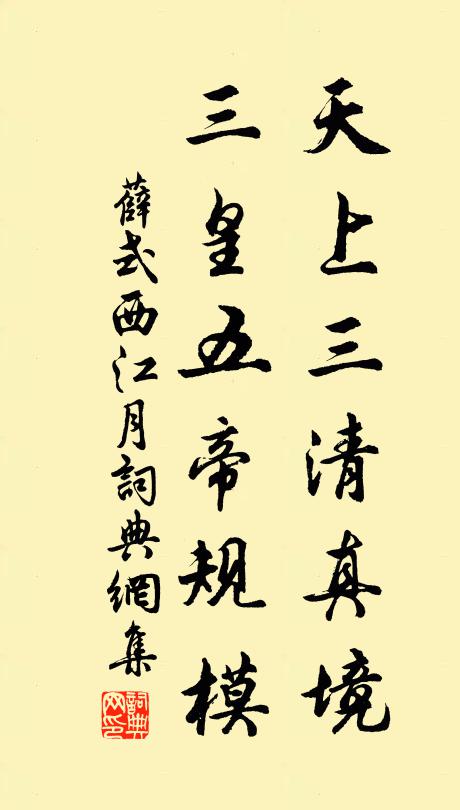 天上三清真境
三皇五帝規模
薛式西江月詞典網集
詞典网印